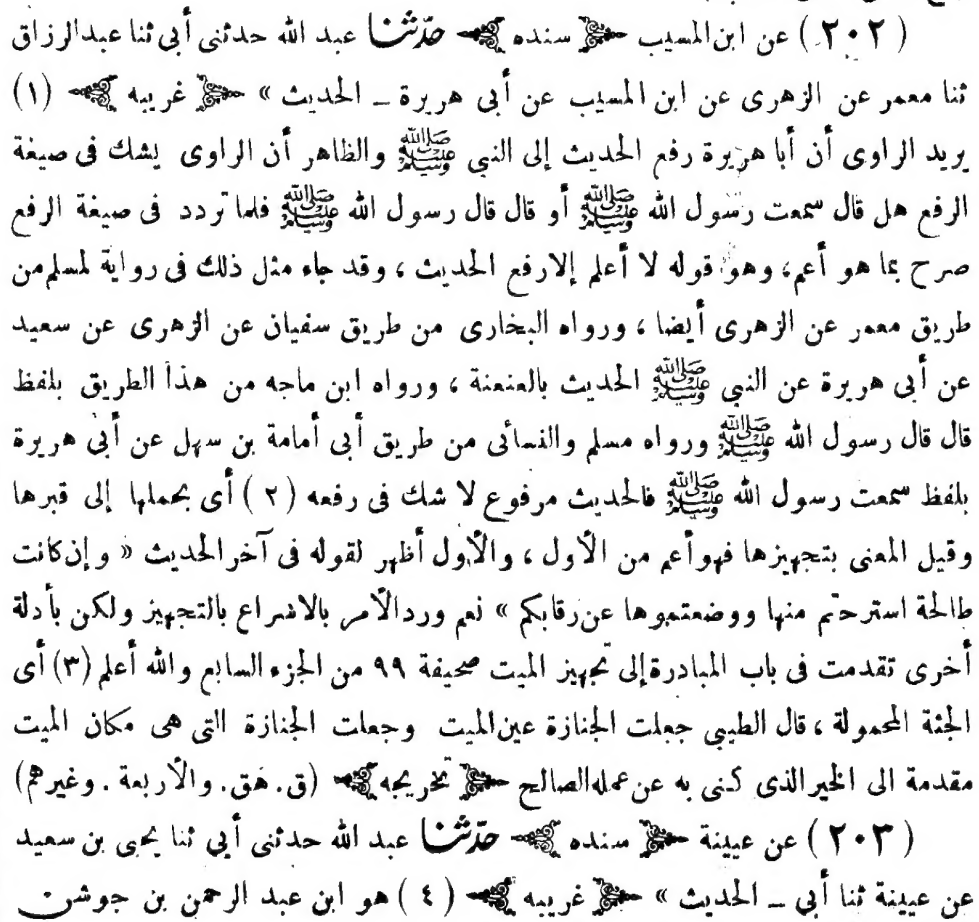 (٢٠٢) عن ابن المسيب ﴿ سنده ﴾ حدّثنا عبد الله حدثنى أبى ثنا عبدالرزاق
ثنا معمر عن الزهرى عن ابن المسيب عن أبى هريرة ــ الحديث » ﴿ غريبه ﴾ (١)
يريد الراوى أن أبا هريرة رفع الحديث إلى النبي ﷺ والظاهر أن الراوى يشك فى صيغة
الرفع هل قال سمعت رسول الله ﷺ أو قال قال رسول الله ﷺ فلما تردد فى صيغة الرفع
صرح بما هو أعم، وهو قوله لا أعلم إلارفع الحديث ، وقد جاء مثل ذلك فى رواية لمسلم من
طريق معمر عن الزهرى أيضا ، ورواه البخارى من طريق سفيان عن الزهرى عن سعيد
عن أبى هريرة عن النبي ﷺ الحديث بالعنعنة ، ورواه ابن ماجه من هذا الطريق بلفظ
قال قال رسول الله ﷺ ورواه مسلم والنسائى من طريق أبى أمامة بن سهل عن أبى هريرة
بلفظ سمعت رسول الله ﷺ فالحديث مرفوع لا شك فى رفعه (٢) أى بحملها إلى قبرها
وقيل المعنى بتجهيزها فهو أعم من الأول ، والأول أظهر لقوله فى آخر الحديث « وإن كانت
طالحة استرحتم منها ووضعتموها عن رقابكم » نعم ورد الأمر بالاسراع بالتجهيز ولكن بأدلة
أخرى تقدمت فى باب المبادرة إلى تجهيز الميت صحيفة ٩٩ من الجزء السابع والله أعلم (٣) أى
الجثة المحمولة ، قال الطيبى جعلت الجنازة عين الميت وجعلت الجنازة التى هى مكان الميت
مقدمة الى الخير الذى كنى به عن عمله الصالح ﴿ تخريجه ﴾ (ق . هق . والأربعة . وغيرهم)
(٢٠٣) عن عيينة ﴿ سنده ﴾ حدّثنا عبد الله حدثنى أبي ثنا يحيى بن سعيد
عن عيينة ثنا أبى ــ الحديث » ﴿ غريبه ﴾ (٤) هو ابن عبد الرحمن بن جوشن